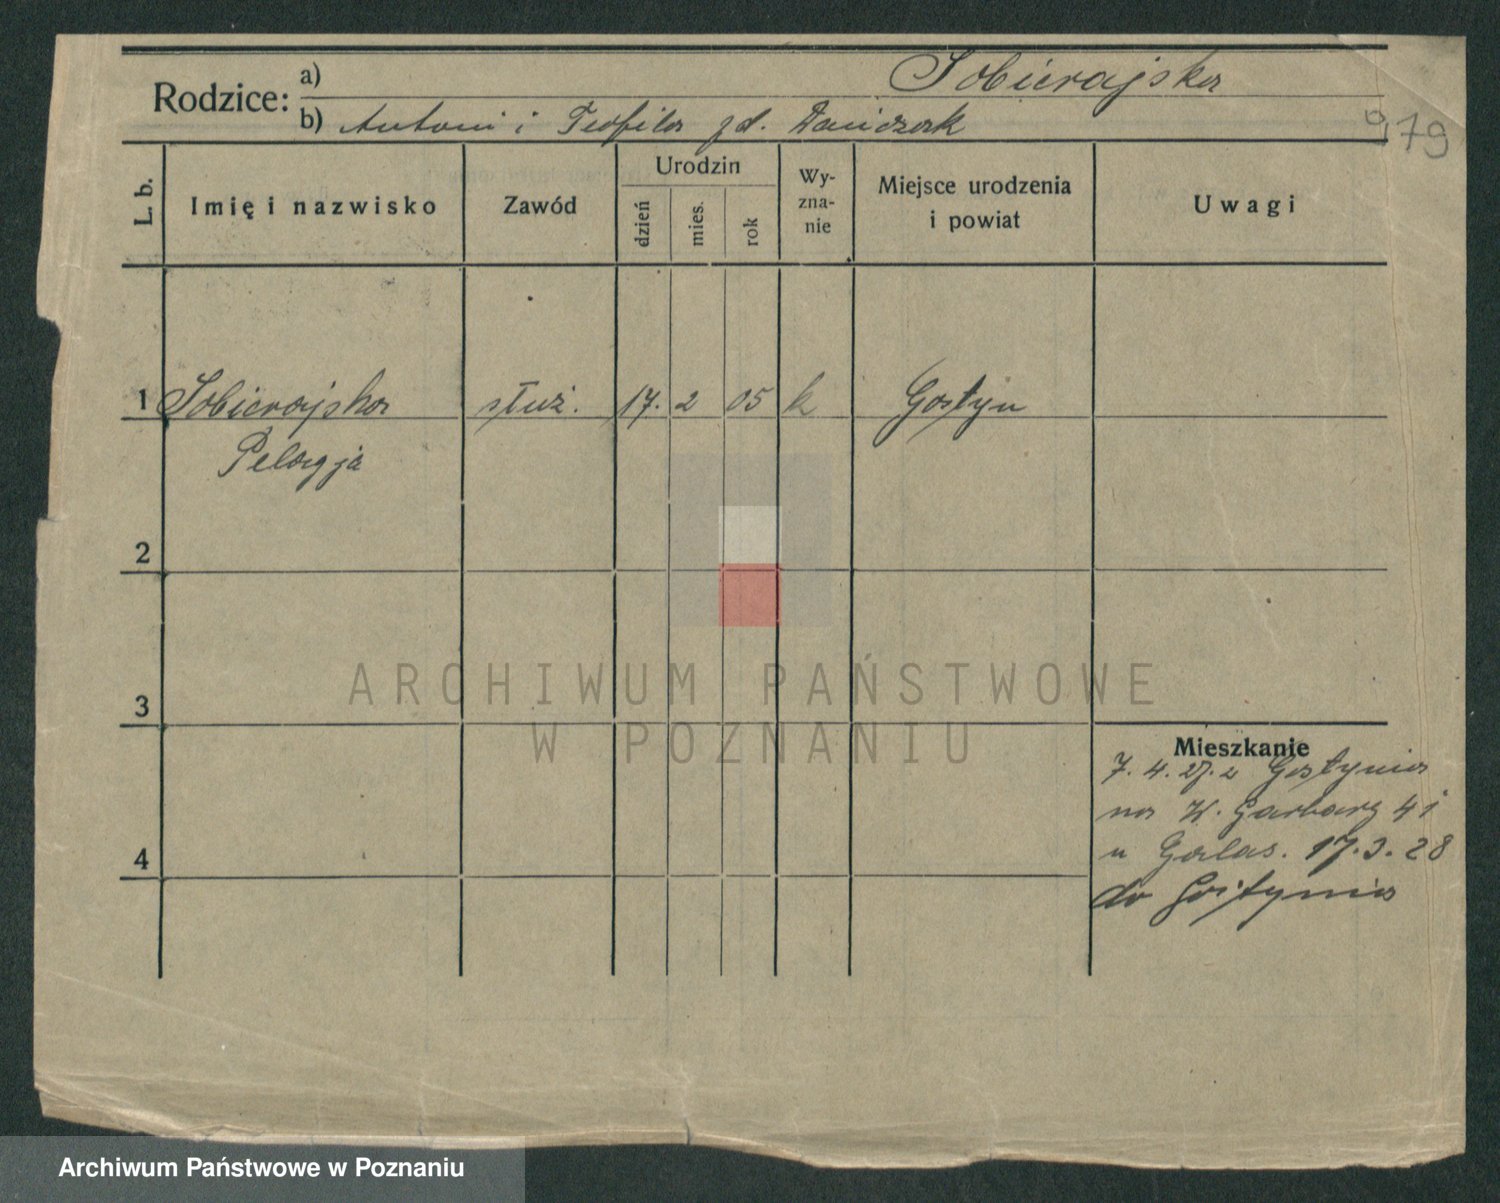 Sobierajska
Rodzice: a)
b) Antoni i Teofila zd. Daniczak
979
L. b.
Imię i nazwisko
Zawód
Urodzin
dzień
mies.
rok
Wy-
zna-
nie
Miejsce urodzenia
i powiat
Uwagi
1 Sobierajska służ. 17. 2 05 k Gostyn
Pelagja
2
3
4
Mieszkanie
7. 4. 27. z Gostynia
na W. Garbary 41
u Galas. 17. 3. 28
do Gostynia
ARCHIWUM PAŃSTWOWE
W POZNANIU
Archiwum Państwowe w Poznaniu